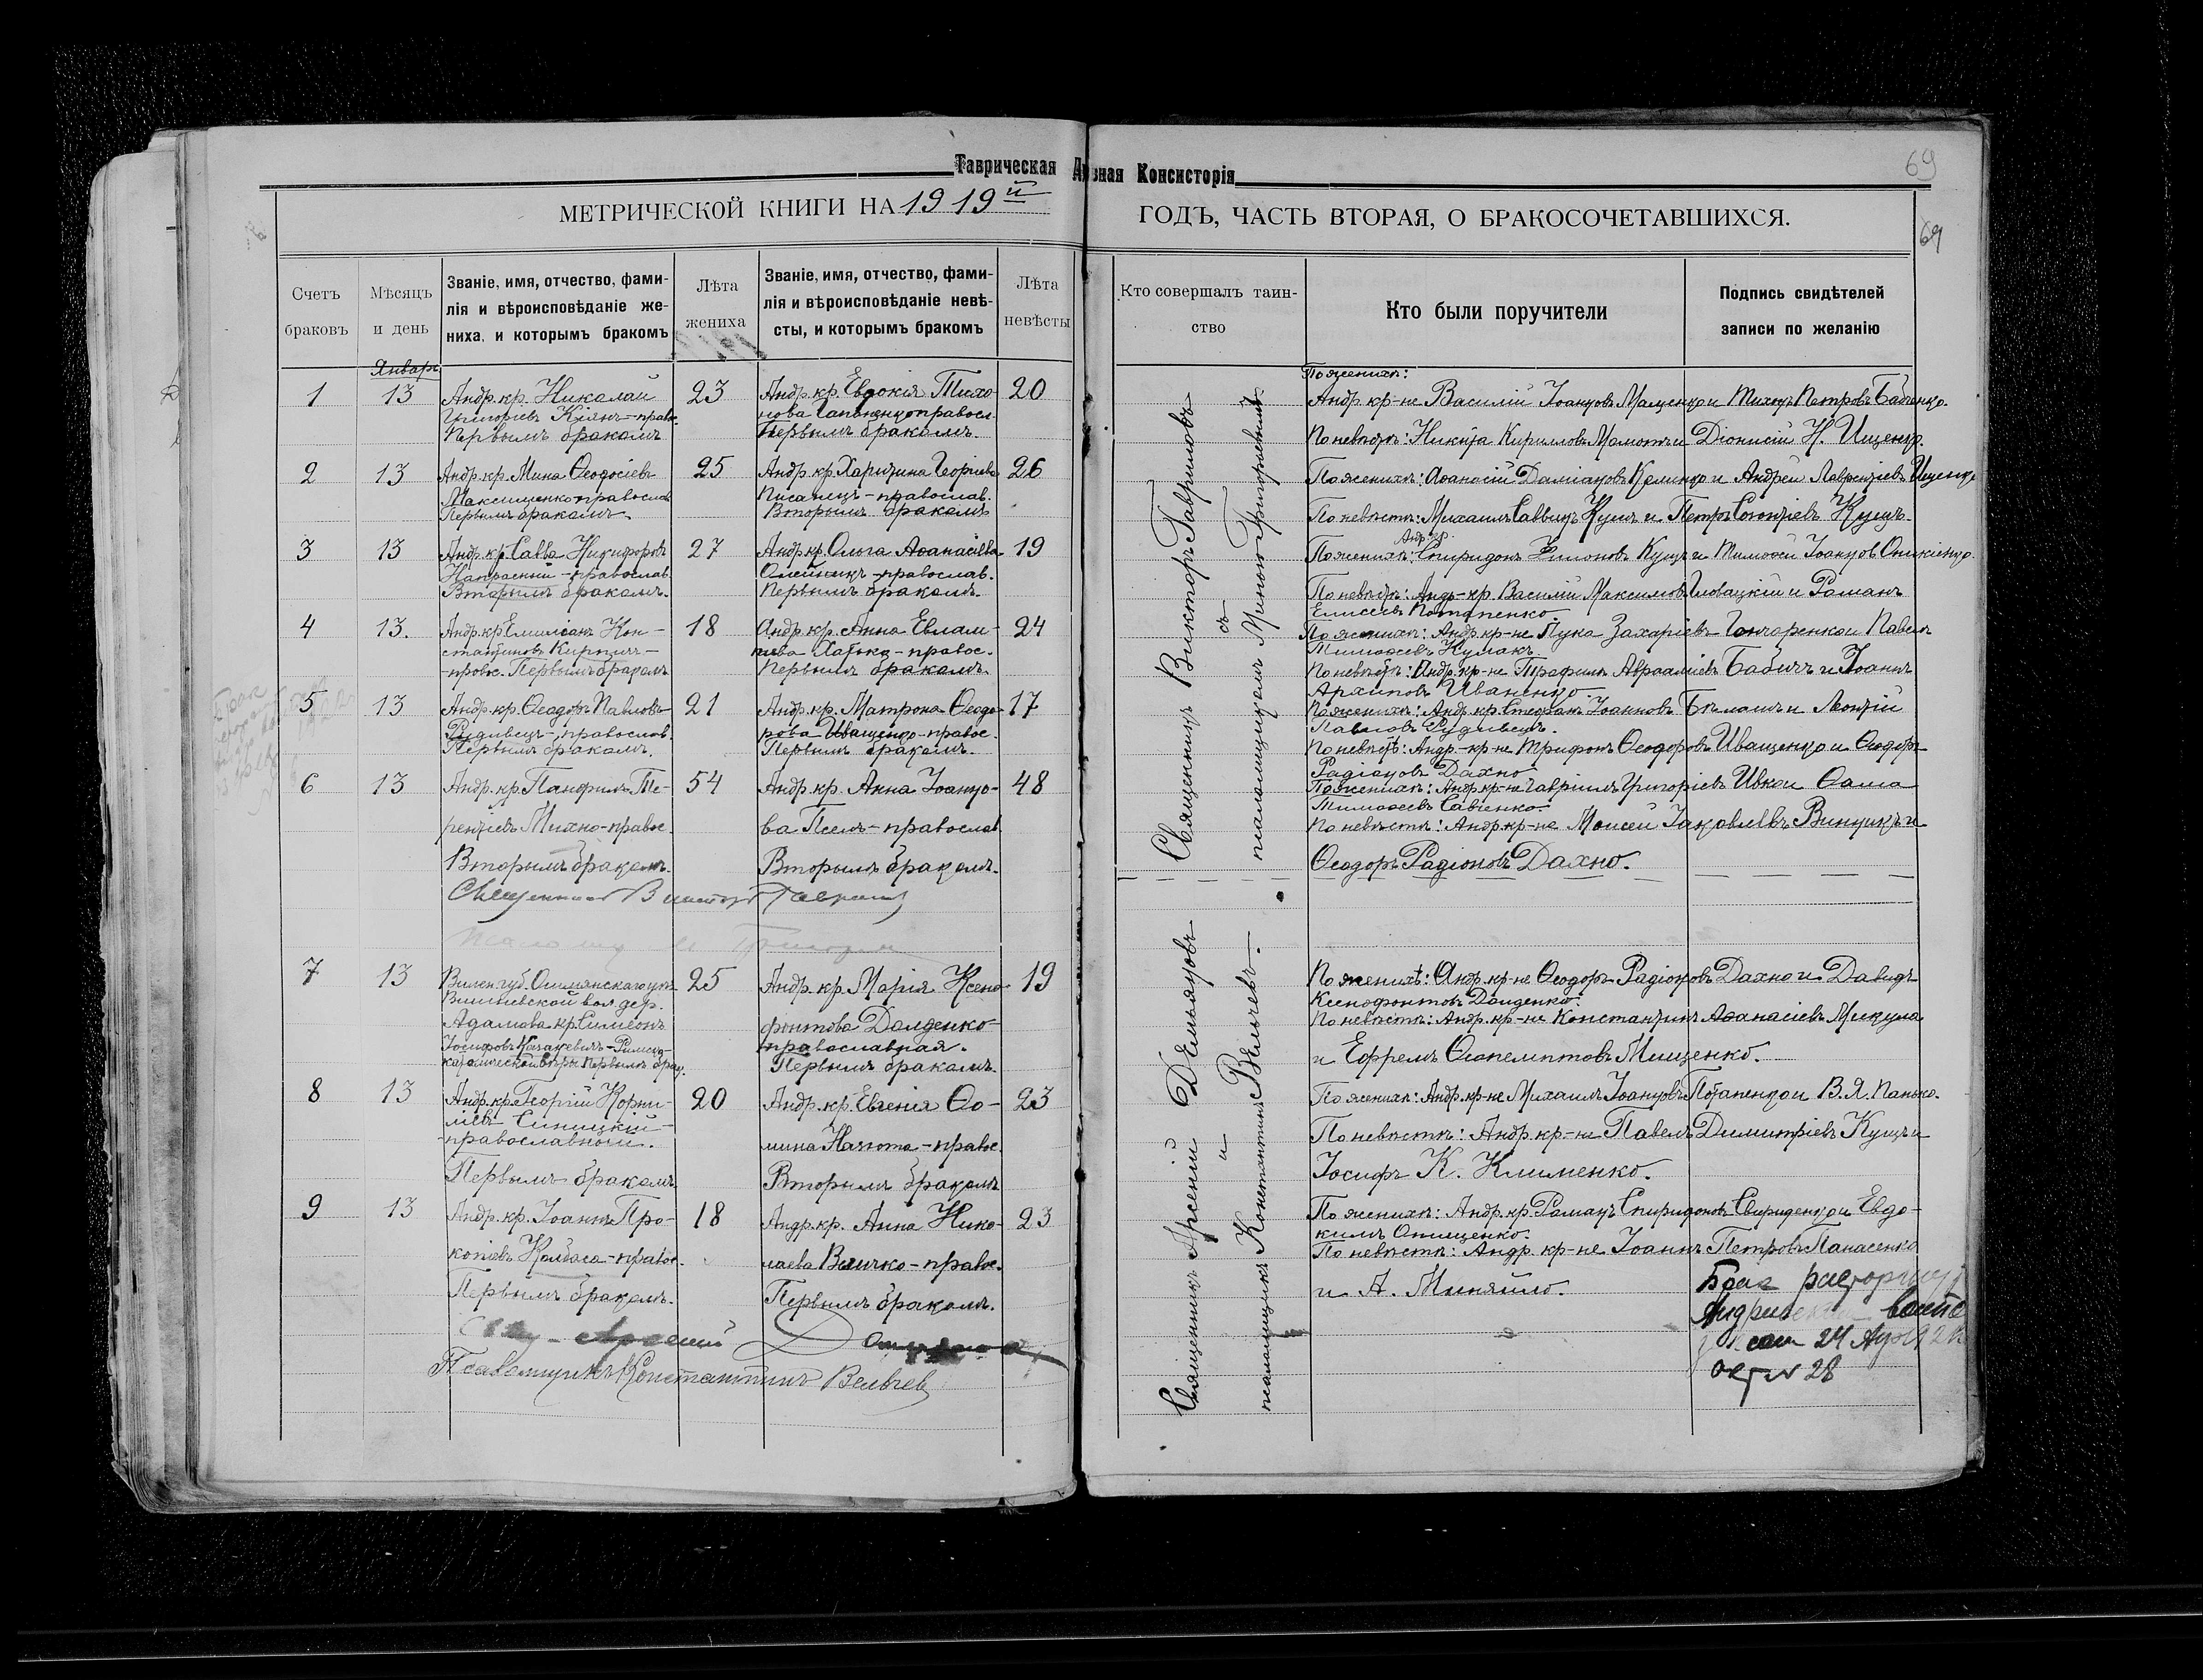 Таврическая
зная Консисторія
69
МЕТРИЧЕСКОЙ КНИГИ НА 1919й
ГОДЪ, ЧАСТЬ ВТОРАЯ, О БРАКОСОЧЕТАВШИХСЯ.
69
Счетъ
браковъ
Мѣсяцъ
и день
Званіе, имя, отчество, фами-
лія и вѣроисповѣданіе же-
ниха, и которымъ бракомъ
Лѣта
жениха
Званіе, имя, отчество, фами-
лія и вѣроисповѣданіе невѣ-
сты, и которымъ бракомъ
Лѣта
невѣсты
Кто совершалъ таин-
ство
Кто были поручители
Подпись свидѣтелей
записи по желанію
Январь
1
13
Андр. кр. Николай
Григоріевъ Кіянъ - прав.
Первымъ бракомъ
23
Андр. кр. Евдокія Тихо-
нова православ
Первымъ бракомъ.
20
По женихѣ:
Андр. кр-не Василій Іоанновъ Мащенко и Тихонъ Петровъ Бабенко.
По невѣстѣ: Никита Кирилловъ Мамонтъ и Діонисій Н. Ищенко.
2
13
Андр. кр. Мина Ѳеодосіевъ
Максименко православ
Первымъ бракомъ.
25
Андр. кр. Харитина Георгіева
Писанецъ - православ.
Вторымъ бракомъ
26
По женихѣ: Аѳанасій Даміановъ и Андрей Лаврентіевъ Ищенко
По невѣстѣ: Михаилъ Саввинъ Кущъ и Петръ Кущъ.
3
13
Андр. кр. Савва Никифоровъ
Напрасный - православ.
Вторымъ бракомъ.
27
Андр. кр. Ольга Аѳанасіева
Олейникъ - православ.
Первымъ бракомъ.
19
Андр. кр.
По женихѣ: Спиридонъ Кущъ и Тимоѳей Іоанновъ Оникіенко.
По невѣстѣ: Андр-кр. Василій Максимовъ и Романъ
Елисеевъ Потапенко.
4
13.
Андр. кр. Емиліанъ Кон-
стантиновъ Кирпичъ -
- правос. Первымъ бракомъ
18
Андр. кр. Анна Евлам-
піева Латько - правос.
Первымъ бракомъ.
24
По женихѣ: Андр. кр-не Лука Захаріевъ Гончаренко и Павелъ
Тимоѳеевъ Кулакъ.
По невѣстѣ: Андр. кр-не Трофимъ Авраамовъ Бабичъ и Іоаннъ
Архиповъ Иваненко.
5
13
Андр. кр. Ѳеодоръ Павловъ
Рудивецъ - православ.
Первымъ бракомъ.
21
Андр. кр. Матрона Ѳеодо-
рова Иващенко - правос.
Первымъ бракомъ.
17
По женихѣ: Андр. кр. Стефанъ Іоанновъ Біланъ и Леонтій
Павловъ Рудивецъ.
По невѣстѣ: Андр. - кр-не Трифонъ Ѳеодоровъ Иващенко и Ѳеодоръ
Радіоновъ Дахно
6
13
Андр. кр. Панфилъ Те-
рентіевъ Михно - правос.
Вторымъ бракомъ.
54
Андр. кр. Анна Іоанно-
ва Пселъ - православ
Вторымъ бракомъ.
48
По женихѣ: Андр. кр-не Гавріилъ Григоріевъ Ивко и Ѳома
Тимоѳеевъ Савіенко
По невѣстѣ: Андр. кр-не Моисей Іаковлевъ Винникъ и
Ѳеодоръ Радіоновъ Дахно.
Священникъ Викторъ Гавриловъ
съ
псаломщикомъ Миною Григорьевымъ.
Священникъ Викторъ Гаврилов
7
13
Вилен. губ. Ошмянскаго уѣз.
Вишневской вол. дер.
Адамова кр. Симеонъ
Іосифовъ - Римско-
католической вѣры Первымъ брак.
25
Андр. кр. Марія Ксено-
фонтова Долденко -
православная.
Первымъ бракомъ.
19
По женихѣ: Андр. кр-не Ѳеодоръ Радіоновъ Дахно и Давидъ
Ксенофонтовъ Долденко.
По невѣстѣ: Андр. кр-не Константинъ Аѳанасіевъ Микула
и Ефремъ Ѳеопемптовъ Мищенко.
8
13
Андр. кр. Георгій Корни-
ліевъ Синицкій -
- православной.
Первымъ бракомъ.
20
Андр. кр. Евгенія Ѳо-
мина - правос.
Вторымъ бракомъ
23
По женихѣ: Андр. кр-не Михаилъ Іоанновъ Потапенко и В. Я. Панько.
По невѣстѣ: Андр. кр-не Павелъ Димитріевъ Кущъ и
Іосифъ К. Клименко.
9
13
Андр. кр. Іоаннъ Про-
копіевъ Колбаса - правос.
Первымъ бракомъ.
18
Андр. кр. Анна Нико-
лаева Величко - правос.
Первымъ бракомъ.
23
По женихѣ: Андр. кр. Романъ Спиридоновъ Свириденко и Евдо-
кимъ Онищенко.
По невѣстѣ: Андр. кр-не Іоаннъ Петровъ Панасенко
и А. Миняйло.
Священникъ Арсеній Демьяновъ
и
псаломщикъ Константинъ Вельчевъ.
Арсеній
Псаломщикъ Константинъ Вельчевъ
Брак расторгнут
24
28